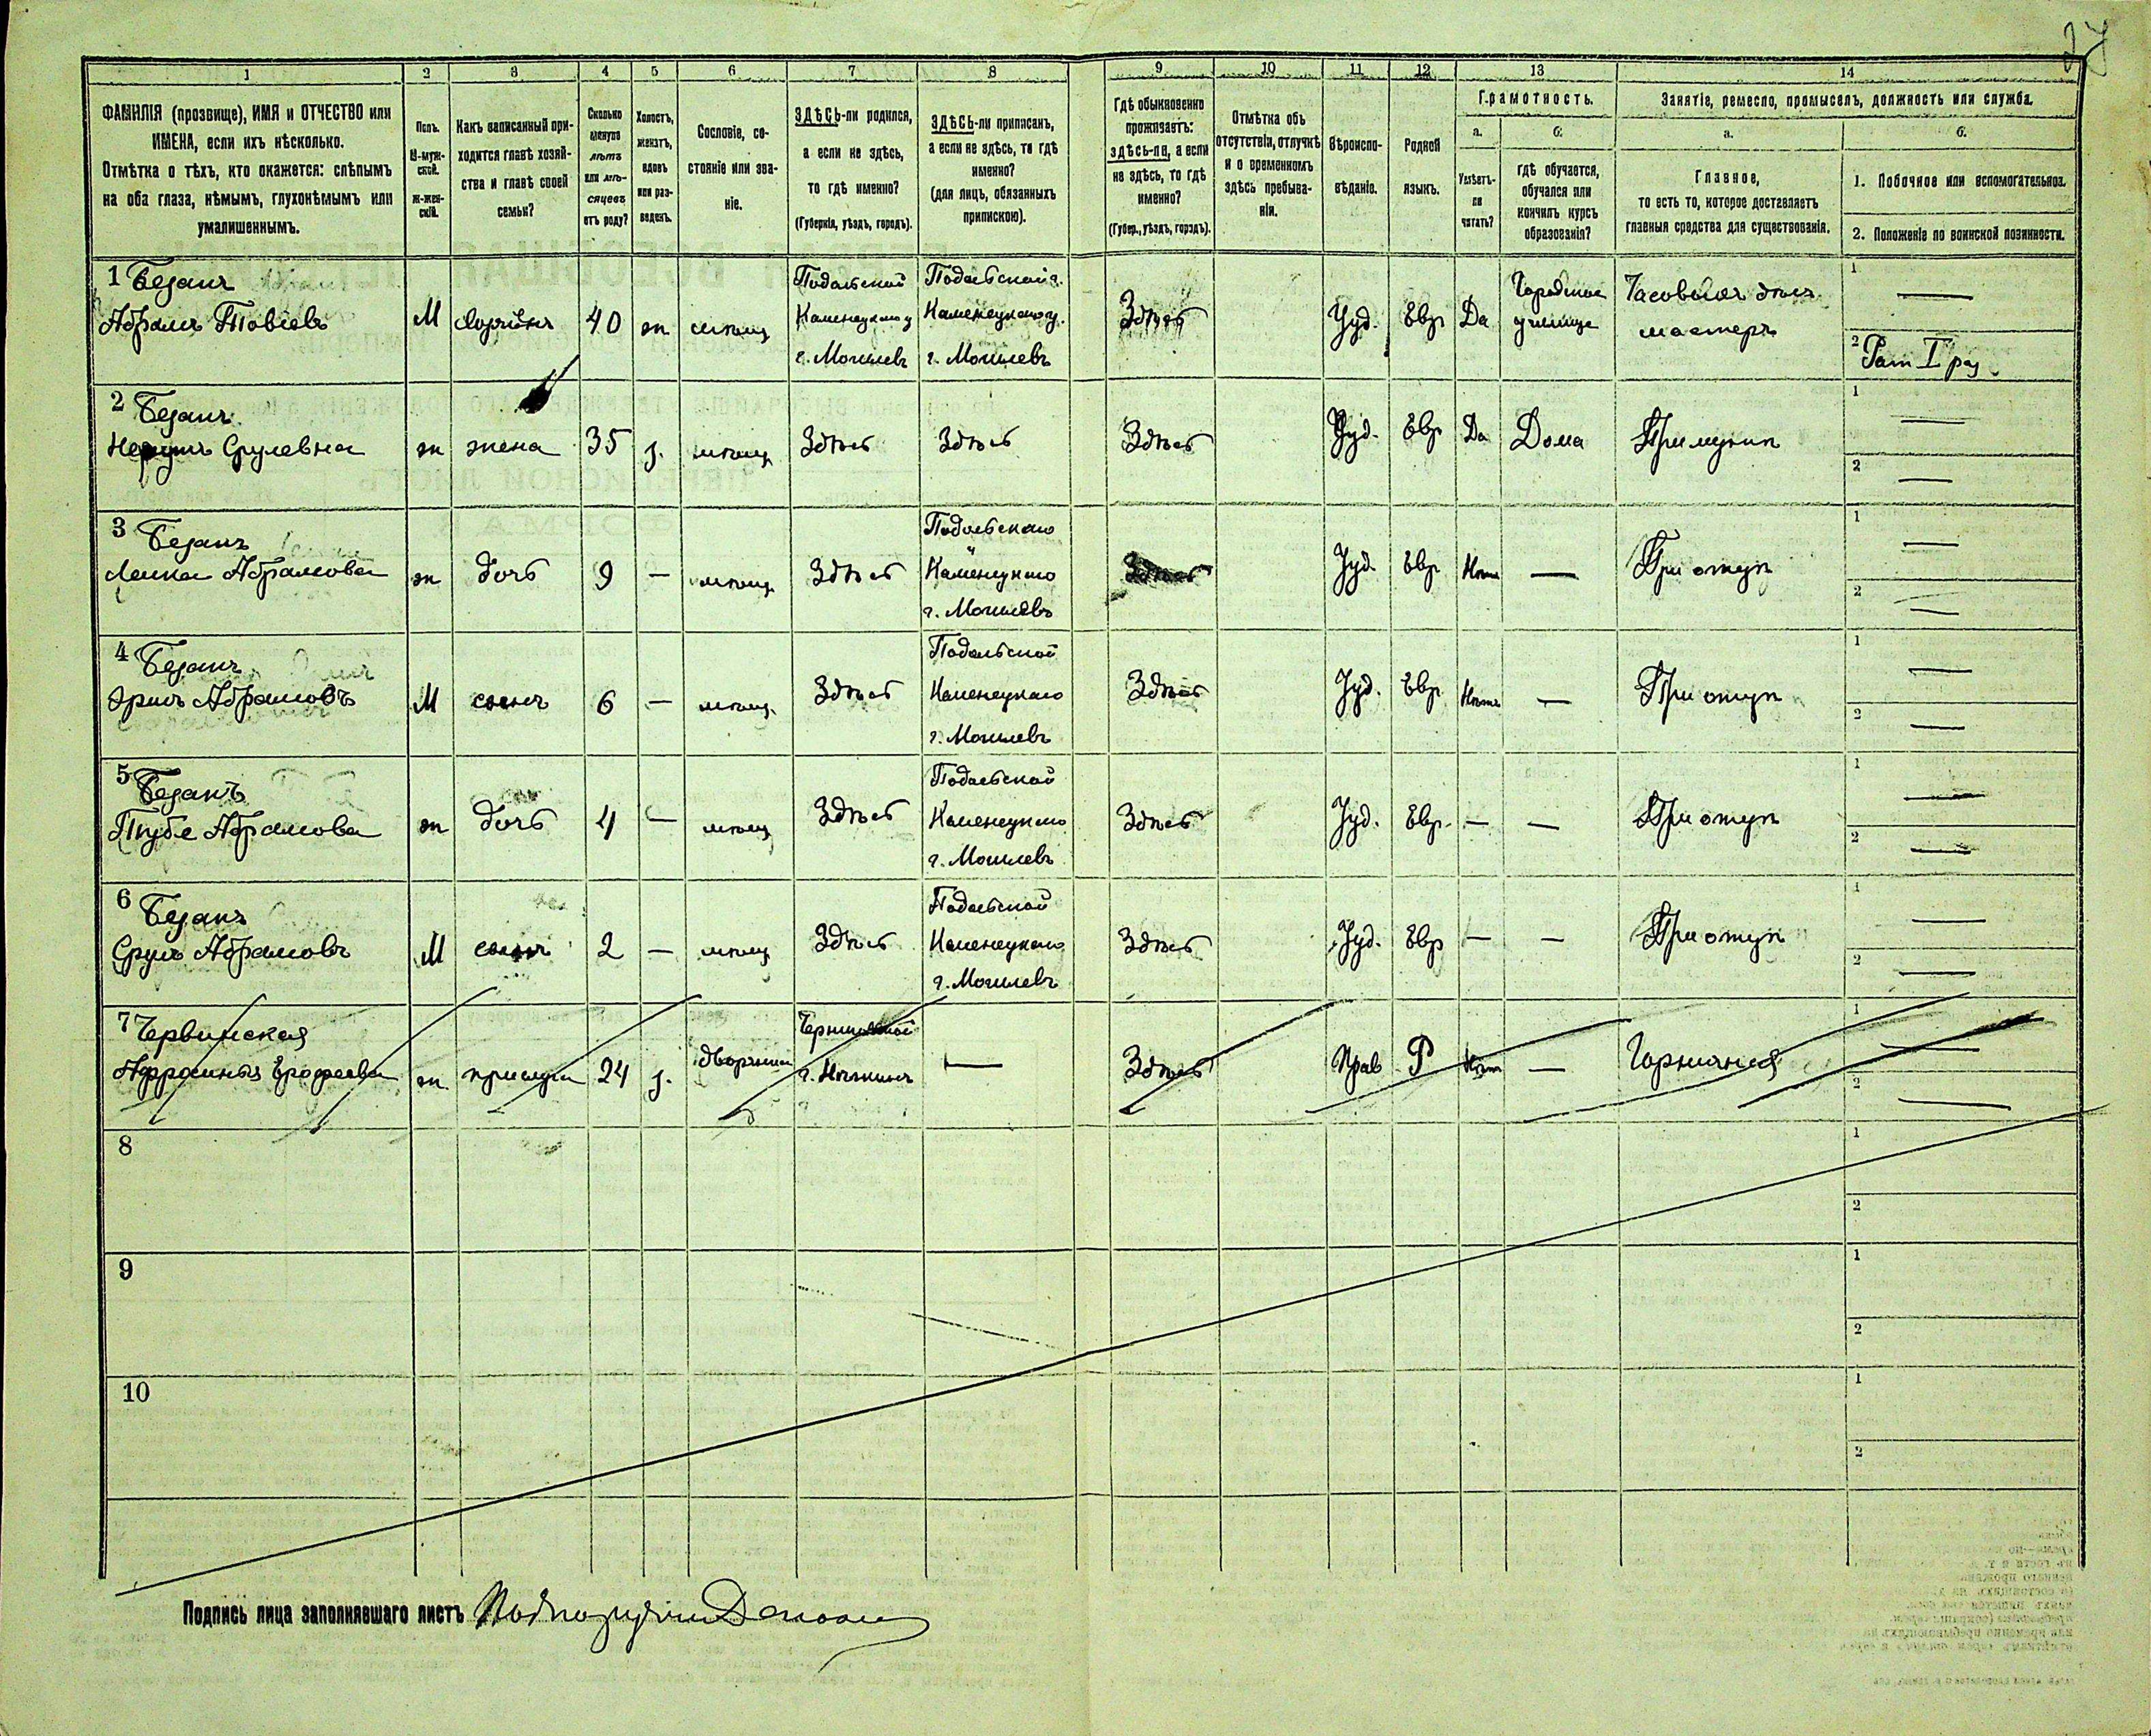 27
1 2 3 4 5 6 7 8 9 10 11 12 13 14
ФАМИЛІЯ (прозвище), ИМЯ и ОТЧЕСТВО или
ИМЕНА, если ихъ нѣсколько.
Отмѣтка о тѣхъ, кто окажется: слѣпымъ
на оба глаза, нѣмымъ, глухонѣмымъ или
умалишеннымъ.
Полъ.
М-муж-
ской.
Ж-жен-
скій.
Какъ записанный при-
ходится главѣ хозяй-
ства и главѣ своей
семьи?
Сколько
минуло
лѣтъ
или мѣ-
сяцевъ
отъ роду?
Холостъ,
женатъ,
вдовъ
или раз-
веденъ.
Сословіе, со-
стояніе или зва-
ніе.
ЗДѢСЬ-ли родился,
а если не здѣсь,
то гдѣ именно?
(Губернія, уѣздъ, городъ).
ЗДѢСЬ-ли приписанъ,
а если не здѣсь, то гдѣ
именно?
(для лицъ, обязанныхъ
припискою).
Гдѣ обыкновенно
проживаетъ:
здѣсь-ли, а если
не здѣсь, то гдѣ
именно?
(Губер., уѣздъ, городъ).
Отмѣтка объ
отсутствіи, отлучкѣ
и о временномъ
здѣсь пребыва-
ніи.
Вѣроиспо-
вѣданіе.
Родной
языкъ.
Грамотность.
а.
Умѣетъ-
ли
читать?
б.
гдѣ обучается,
обучался или
кончилъ курсъ
образованія?
Занятіе, ремесло, промыселъ, должность или служба.
а.
Главное,
то есть то, которое доставляетъ
главныя средства для существованія.
б.
1. Побочное или вспомогательное.
2. Положеніе по воинской повинности.
1 Безанъ
Абрамъ Товіевъ
М
40
ж
Подольской
Каменецкаго у
г. Могилевъ
Подольской г.
Каменецкаго у.
г. Могилевъ
Здѣсь
Іуд.
Евр
Да
Городское
училище
Часовыхъ дѣлъ
мастеръ
1 —
2 Рат I раз
2 Безанъ
Срулевна
ж
жена
35
з.
мѣщ
Здѣсь
Здѣсь
Здѣсь
Іуд.
Евр
Да
Дома
При мужѣ
1 —
2 —
3 Безанъ
Абрамова
ж
дочь
9
—
мѣщ
Здѣсь
Подольскаго
Каменецкаго
г. Могилевъ
Здѣсь
Іуд.
Евр
Нѣтъ
—
При отцѣ
1 —
2 —
4 Безанъ
Абрамовъ
М
сынъ
6
—
мѣщ.
Здѣсь
Подольской
Каменецкаго
г. Могилевъ
Здѣсь
Іуд.
Евр
Нѣтъ
—
При отцѣ
1 —
2 —
5 Безанъ
Абрамова
ж
дочь
4
—
мѣщ
Здѣсь
Подольской
Каменецкаго
г. Могилевъ
Здѣсь
Іуд.
Евр.
—
—
При отцѣ
1 —
2 —
6 Безанъ
Сруль Абрамовъ
М
сынъ
2
—
мѣщ
Здѣсь
Подольской
Каменецкаго
г. Могилевъ
Здѣсь
Іуд.
Евр
—
—
При отцѣ
1 —
2 —
7 Червинская
ж
прислуга
24
з.
г. Нѣжинъ
—
Здѣсь
Прав
Р
Нѣтъ
—
Горничная
1 —
2 —
8
1
2
9
1
2
10
1
2
Подпись лица заполнявшаго листъ